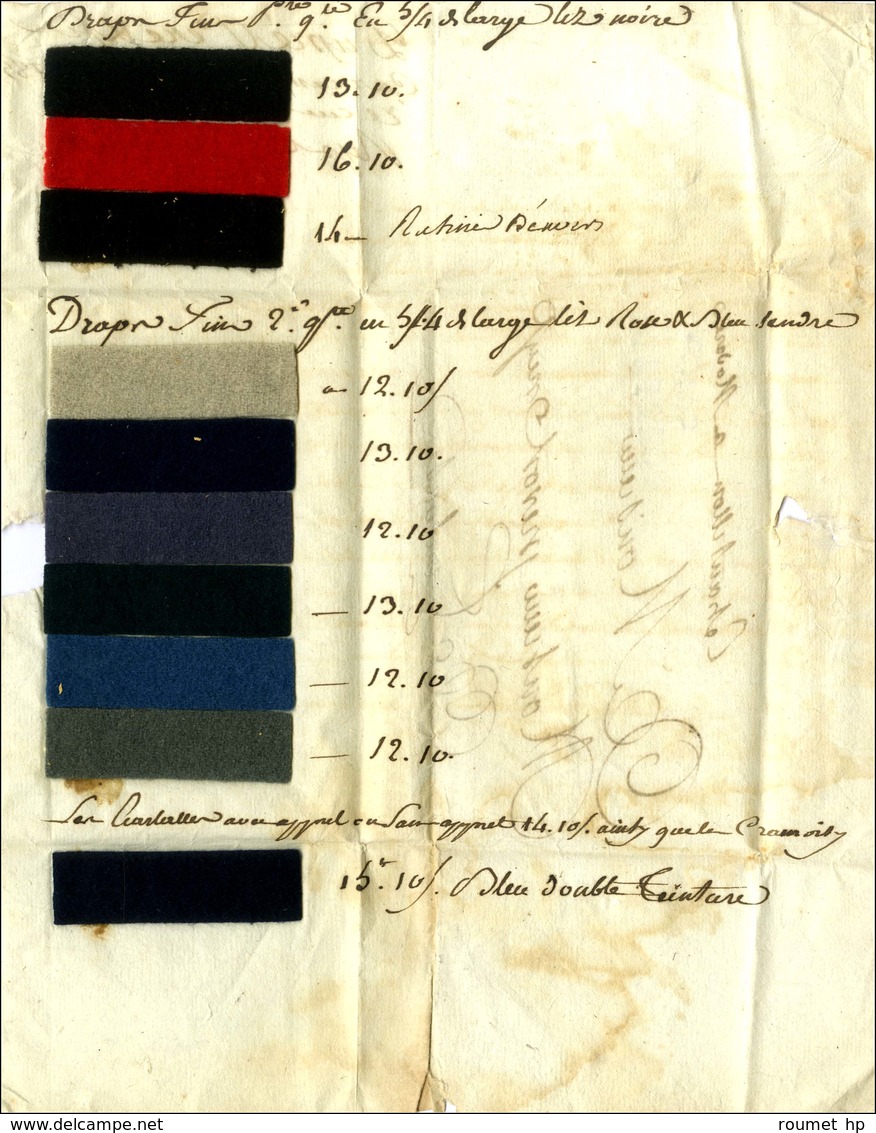 Draps fins p.re q.té en 5/4 de large liz noire
13. 10.
16. 10.
14 — Ratine d'envers
Draps fins 2.e q.té en 5/4 de large liz Rose & Bleu tendre
a 12. 10/
13. 10.
12. 10
— 13. 10
— 12. 10
— 12. 10.
Les Ecarlattes avec appret ou sans appret 14. 10/. ainsy que le Cramoisy
15.# 10/. Bleu double Teinture
Monsieur
delcampe.net
roumet hp